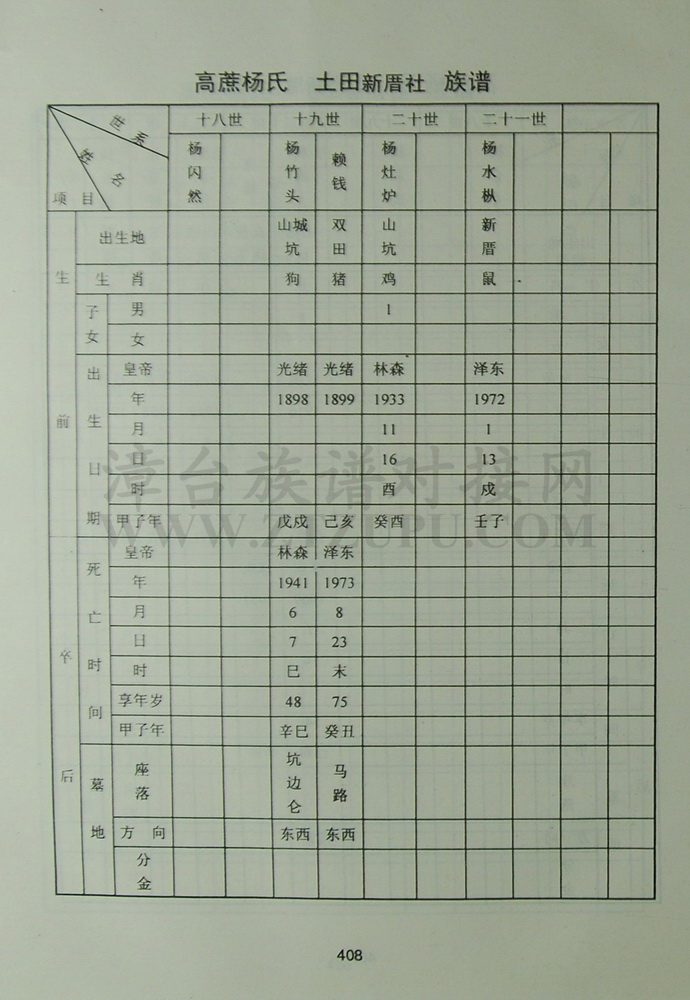 高蔗杨氏 土田新厝社 族谱
世系 十八世 十九世 二十世 二十一世
姓名 杨闪然 杨竹头 赖钱 杨灶炉 杨水枞
项目
生前 出生地 山城坑 双田 山坑 新厝
生肖 狗 猪 鸡 鼠
子女 男 1
女
出生日期 皇帝 光绪 光绪 林森 泽东
年 1898 1899 1933 1972
月 11 1
日 16 13
时 酉 戍
甲子年 戊戍 己亥 癸酉 壬子
卒后 死亡时间 皇帝 林森 泽东
年 1941 1973
月 6 8
日 7 23
时 巳 末
享年岁 48 75
甲子年 辛巳 癸丑
墓地 座落 坑边仑 马路
方向 东西 东西
分金
漳台族谱对接网
WWW.ZTZUPU.COM
408